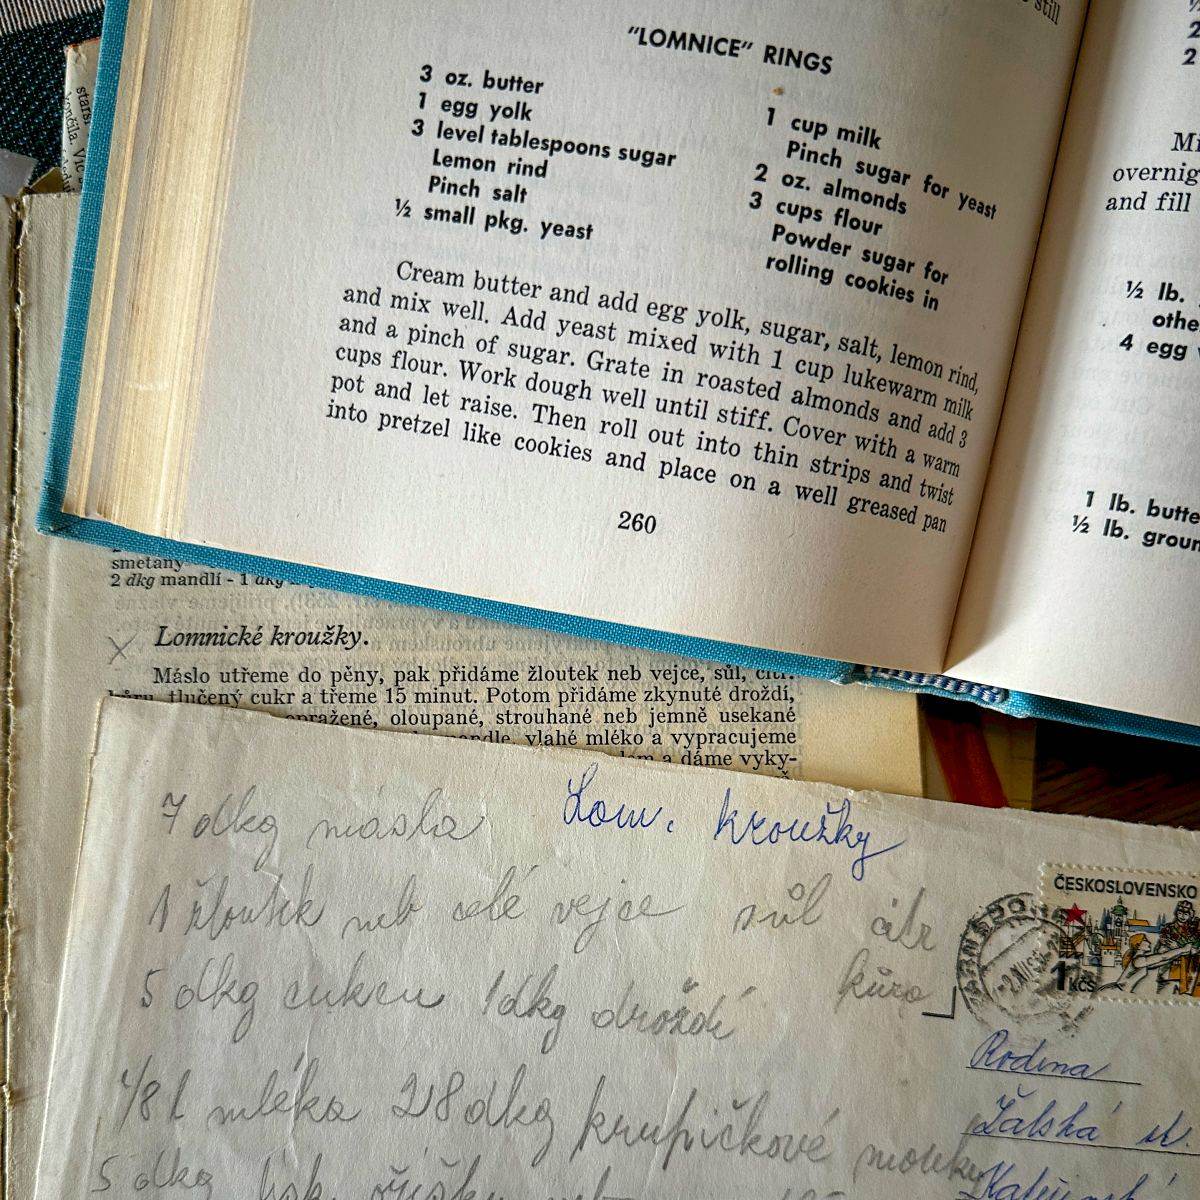 still
"LOMNICE" RINGS
3 oz. butter
1 egg yolk
3 level tablespoons sugar
Lemon rind
Pinch salt
½ small pkg. yeast
1 cup milk
Pinch sugar for yeast
2 oz. almonds
3 cups flour
Powder sugar for
rolling cookies in
Cream butter and add egg yolk, sugar, salt, lemon rind,
and mix well. Add yeast mixed with 1 cup lukewarm milk
and a pinch of sugar. Grate in roasted almonds and add 3
cups flour. Work dough well until stiff. Cover with a warm
pot and let raise. Then roll out into thin strips and twist
into pretzel like cookies and place on a well greased pan
260
½
2
2
Mi
overnig
and fill
½ lb.
othe
4 egg
1 lb. butte
½ lb. groun
starší
končila. Víc
smetany
2 dkg mandlí - 1 dkg
Lomnické kroužky.
Máslo utřeme do pěny, pak přidáme žloutek neb vejce, sůl, citr.
kůru, tlučený cukr a třeme 15 minut. Potom přidáme zkynuté droždí,
opražené, oloupané, strouhané neb jemně usekané
mandle, vlahé mléko a vypracujeme
a dáme vyky-
Lom. kroužky
7 dkg másla
1 žloutek neb celé vejce sůl citr
kůra
5 dkg cukru 1dkg droždí
1/8 l mléka 28dkg krupičkové mouky
5 dkg lísk. oříšků
ČESKOSLOVENSKO
1 KČS
Rodina
Žalská